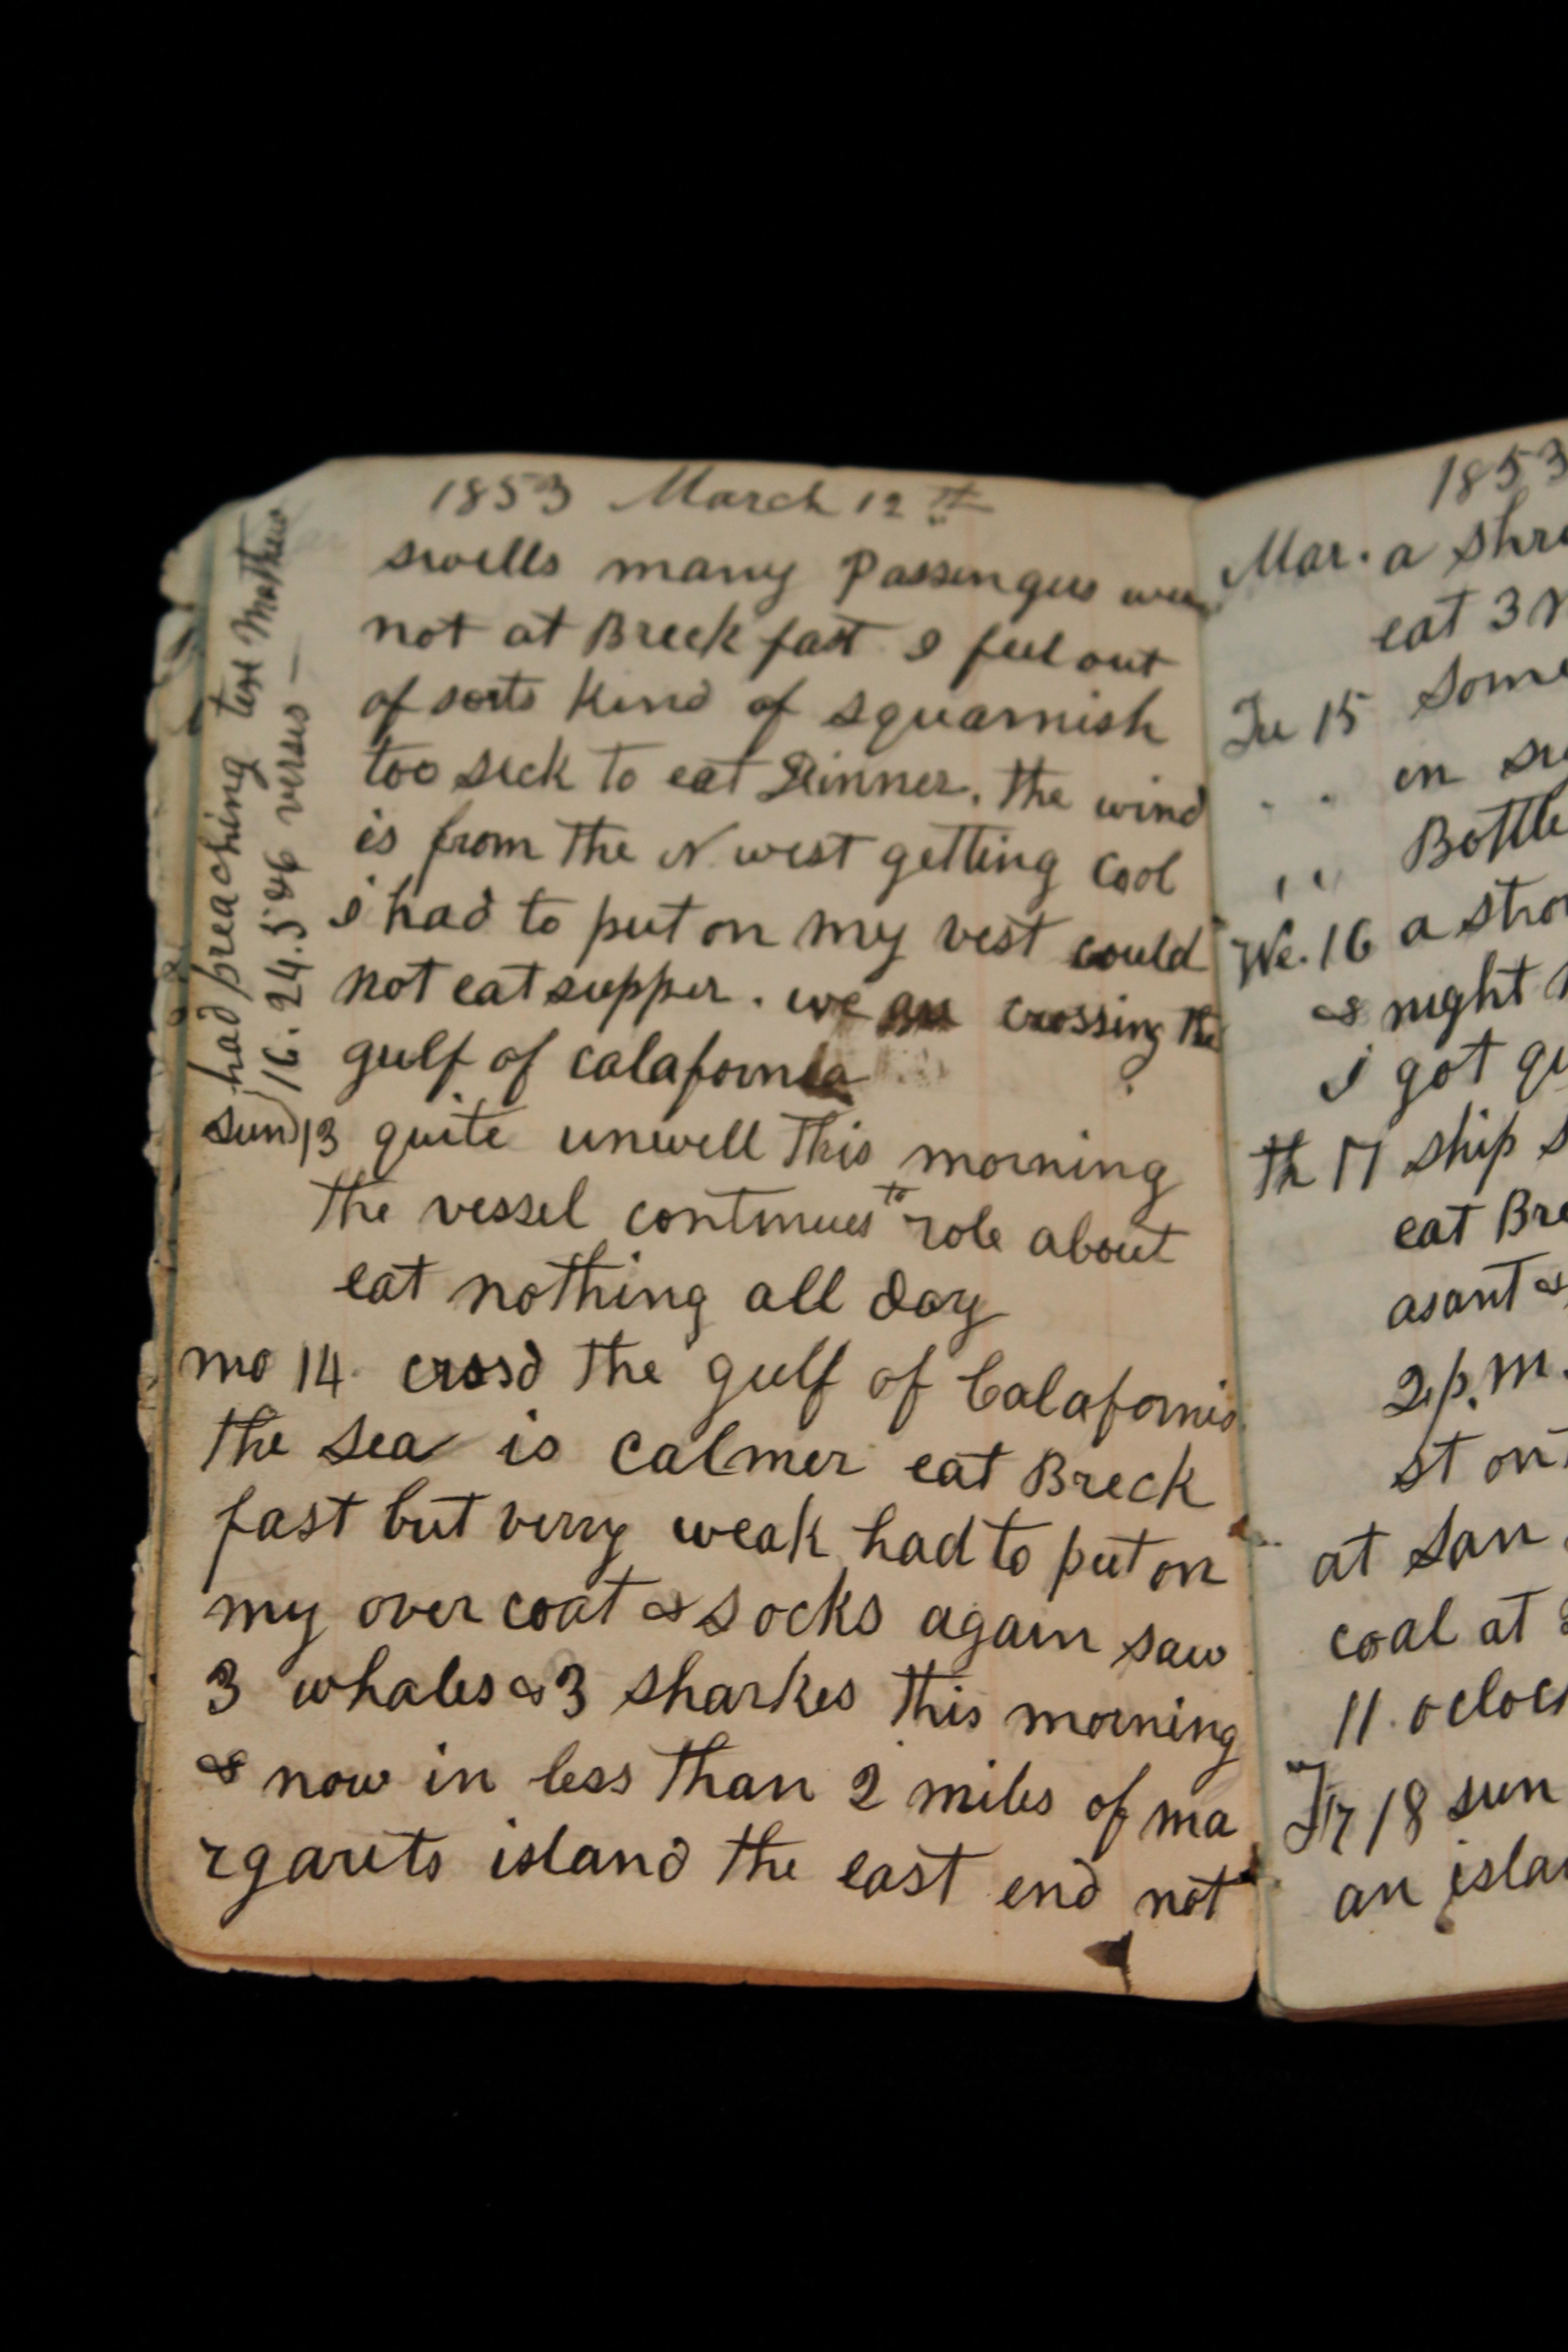 1853 March 12th
swells many Passengers were
not at Breckfast I feel out
of sorts kind of squarmish
too sick to eat Dinner. the wind
is from the N west getting cool
i had to put on my vest could
not eat supper. we are crossing the
gulf of calafornia
Sund 13 quite unwell this morning
the vessel continues to role about
eat nothing all day
mo 14 crosd the gulf of Calafornia
the sea is calmer eat Breck
fast but verry weak had to put on
my over coat & socks again saw
3 whales & 3 sharkes this morning
& now in less than 2 miles of ma
rgarets island the east end not
had preaching text Mathew
16. 24. 5 & 6 verses —
1853
Mar. a
eat 3
Tu 15 Some
in
Bottle
We. 16 a
& night
i got
th 17 ship
eat
asant &
2 p. m.
st on
at San
coal at
11. o
Fr 18 sun
an